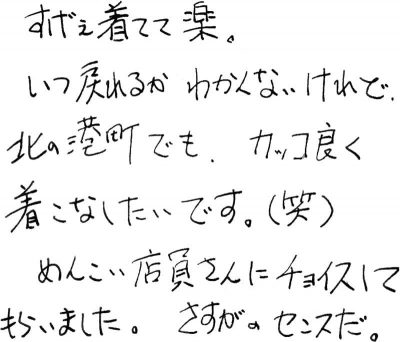 すげぇ着てて楽。
いつ戻れるか わかんないけれど、
北の港町でも、カッコ良く
着こなしたいです。(笑)
めんこい店員さんにチョイスして
もらいました。さすがのセンスだ。